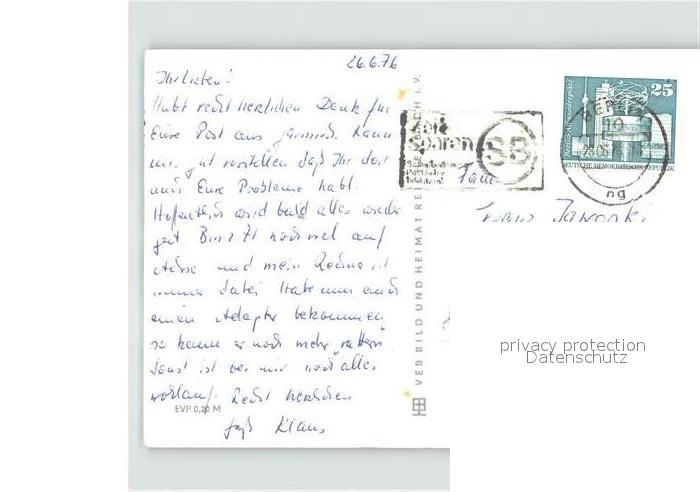 26.6.76
Ihr Lieben!
Habt recht herzlichen Dank für
Eure Post aus Kann
mir gut vorstellen daß Ihr dort
auch Eure Probleme habt.
Hoffentlich wird bald alles wieder
gut. Bin z Zt noch mal auf
Achse und mein Radio ist
immer dabei Habe nun auch
einen Adapter bekommen
so kann er noch mehr
Sonst ist bei mir noch alles
wohlauf. Recht herzlichen
Gruß Klaus
EVP 0,20 M
VEB BILD UND HEIMAT REICHENBACH I. V.
Zeit
sparen
SB
BERLIN
10
25
Berlin-Alexanderplatz
DEUTSCHE DEMOKRATISCHE REPUBLIK
Fam
Franz
privacy protection
Datenschutz